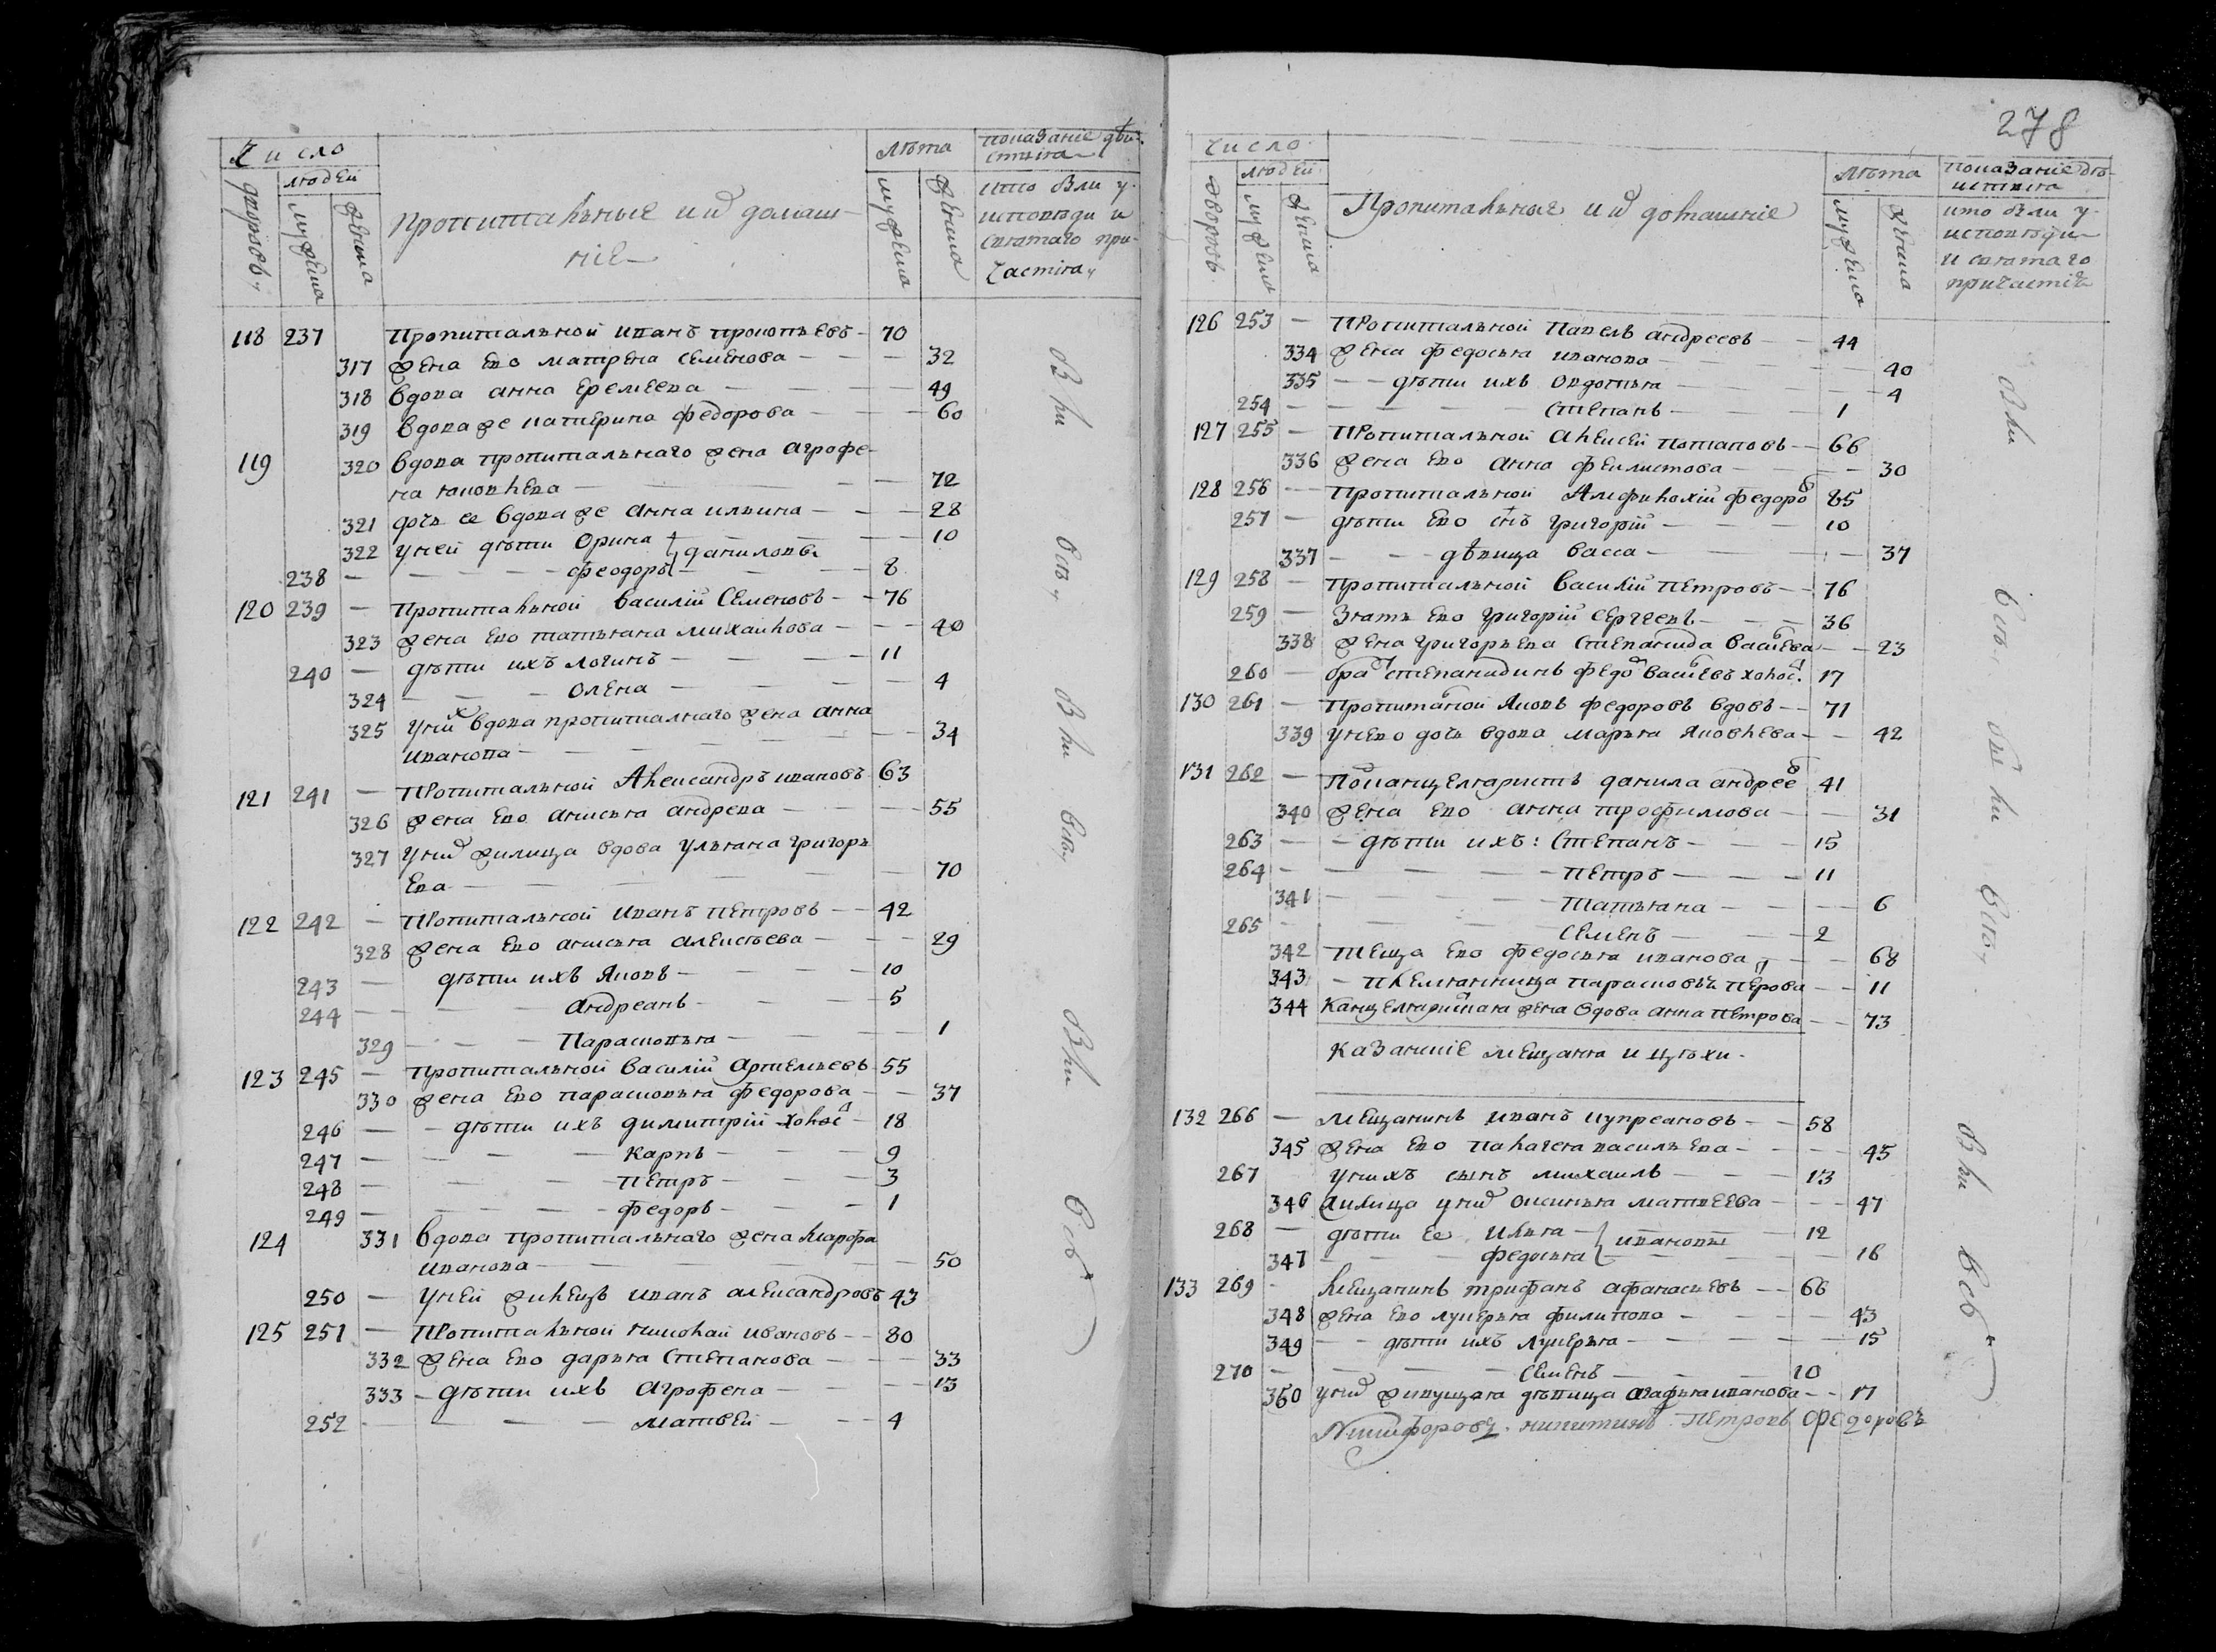 Число
людей
дворовъ
мужеска
женска
пропитальные и иⷯ домаш-
ніе
Лѣта
мужеска
женска
показаніе дѣи-
ствiя
кто были у
исповѣди и
святаго при-
частiя
118 237 Пропитальной иванъ прокопьевъ 70
317 жена ево матрена семенова 32
318 вдова анна еремеева 49
319 вдова же катерина федорова 60
119 320 вдова пропитальнаго жена агрофе-
на яковлева 72
321 дочь ее вдова же анна ильина 28
322 у ней дѣти Орина } даниловы 10
238 феодоръ 8
120 239 Пропитальной василій Семеновъ 76
323 жена ево татьяна михаилова 40
240 дѣти ихъ логинъ 11
324 Олена 4
325 у ниⷯ вдова пропиталнаго жена анна
иванова 34
121 241 Пропитальной Александръ ивановъ 63
326 жена ево анисья андреева 55
327 у ниⷯ жилица вдова ульяна григорь
ева 70
122 242 Пропитальной иванъ петровъ 42
328 жена ево анисья алексѣева 29
243 дѣти ихъ Яковъ 10
244 андреанъ 5
329 Парасковья 1
123 245 пропитальной василій артемьевъ 55
330 жена ево парасковья федорова 37
246 дѣти ихъ димитрій холосⷮ 18
247 карпъ 9
248 петръ 3
249 федоръ 1
124 331 вдова пропитальнаго жена марфа
иванова 50
250 у ней жилецъ иванъ александровъ 43
125 251 Пропитальной николай ивановъ 80
332 жена ево дарья степанова 33
333 дѣти ихъ агрофена 13
252 матвей 4
были
всѣ
были
всѣ
были
всѣ
278
число
людей
дворовъ
мужеска
женска
Пропитальные и иⷯ домашніе
Лѣта
мужеска
женска
показаніе дѣ-
иствiя
кто были у
исповѣди
и святаго
причастiя
126 253 Пропитальной Павелъ андреевъ 44
334 жена федосья иванова 40
335 дѣти ихъ Овдотья 4
254 степанъ 1
127 255 Пропитальной алексей потаповъ 66
336 жена ево анна феклистова 30
128 256 Пропитальной Амфилохій федороⷡ 85
257 дѣти ево снъ григорій 10
337 дѣвица васса 37
129 258 Пропитальной василій петровъ 76
259 Зять ево григорій сергеевъ 36
338 жена григорьева степанида васиⷧева 23
260 браⷮ степанидинъ федоⷬ васиⷧевъ холосⷮ. 17
130 261 Пропитаⷧной Яковъ федоровъ вдовъ 71
339 у нево дочь вдова марья яковлева 42
131 262 Поⷣканцеляристъ данила андрееⷡ 41
340 жена ево анна трофимова 31
263 дѣти ихъ: Степанъ 15
264 Петръ 11
341 Татьяна 6
265 семенъ 2
342 теща ево федосья иванова 68
343 племянница парасковья пеⷮрова 11
344 Канцеляриⷭтская жена вдова анна петрова 73
Казанскіе мещаня и цѣхи
132 266 мещанинъ иванъ купреановъ 58
345 жена ево палагея васильева 45
267 у нихъ сынъ михаилъ 13
346 жилица у ниⷯ оксинья матвеева 47
268 дѣти ее илья } ивановы 12
347 федосья 16
133 269 мещанинъ трифанъ афанасьевъ 66
348 жена ево лукерья филипова 43
349 дѣти ихъ лукерья 15
270 семенъ 10
350 у ниⷯ живущая дѣвица агафья иванова 17
были
всѣ
были
всѣ
были
всѣ
никитинъ Петровъ Федоровъ